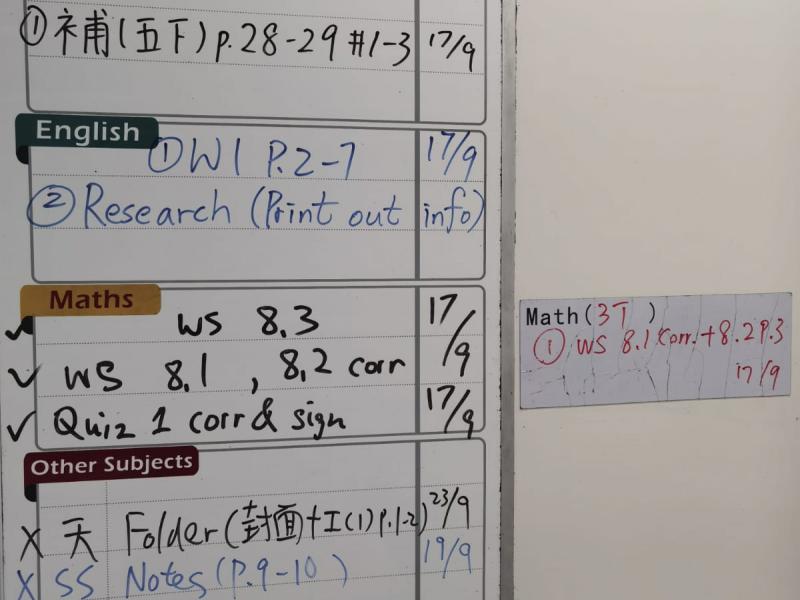 ① 補(五下) p.28-29 #1-3 17/9
English
① W1 P.2-7 17/9
② Research (Print out info)
Maths
✓ WS 8.3 17/9
✓ WS 8.1, 8.2 corr
✓ Quiz 1 corr & sign 17/9
Other Subjects
X 天 Folder (封面+工(1) p.1-2) 23/9
X SS Notes (P.9-10) 19/9
Math(3T )
① WS 8.1 corr. + 8.2 P.3
17/9